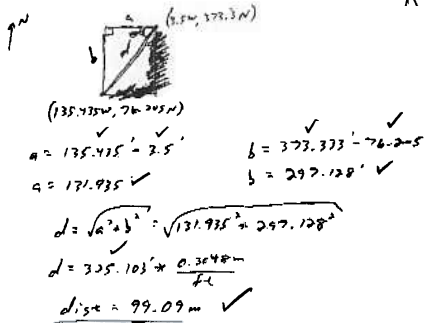 N
a (3.5W, 373.3N)
b d
(135.435W, 76.205N)
a = 135.435' - 3.5' b = 373.333' - 76.205
a = 131.935 ✓ b = 297.128' ✓
d = √a²+b² = √131.935² + 297.128²
d = 325.103' * 0.3048m
ft
dist = 99.09 m ✓